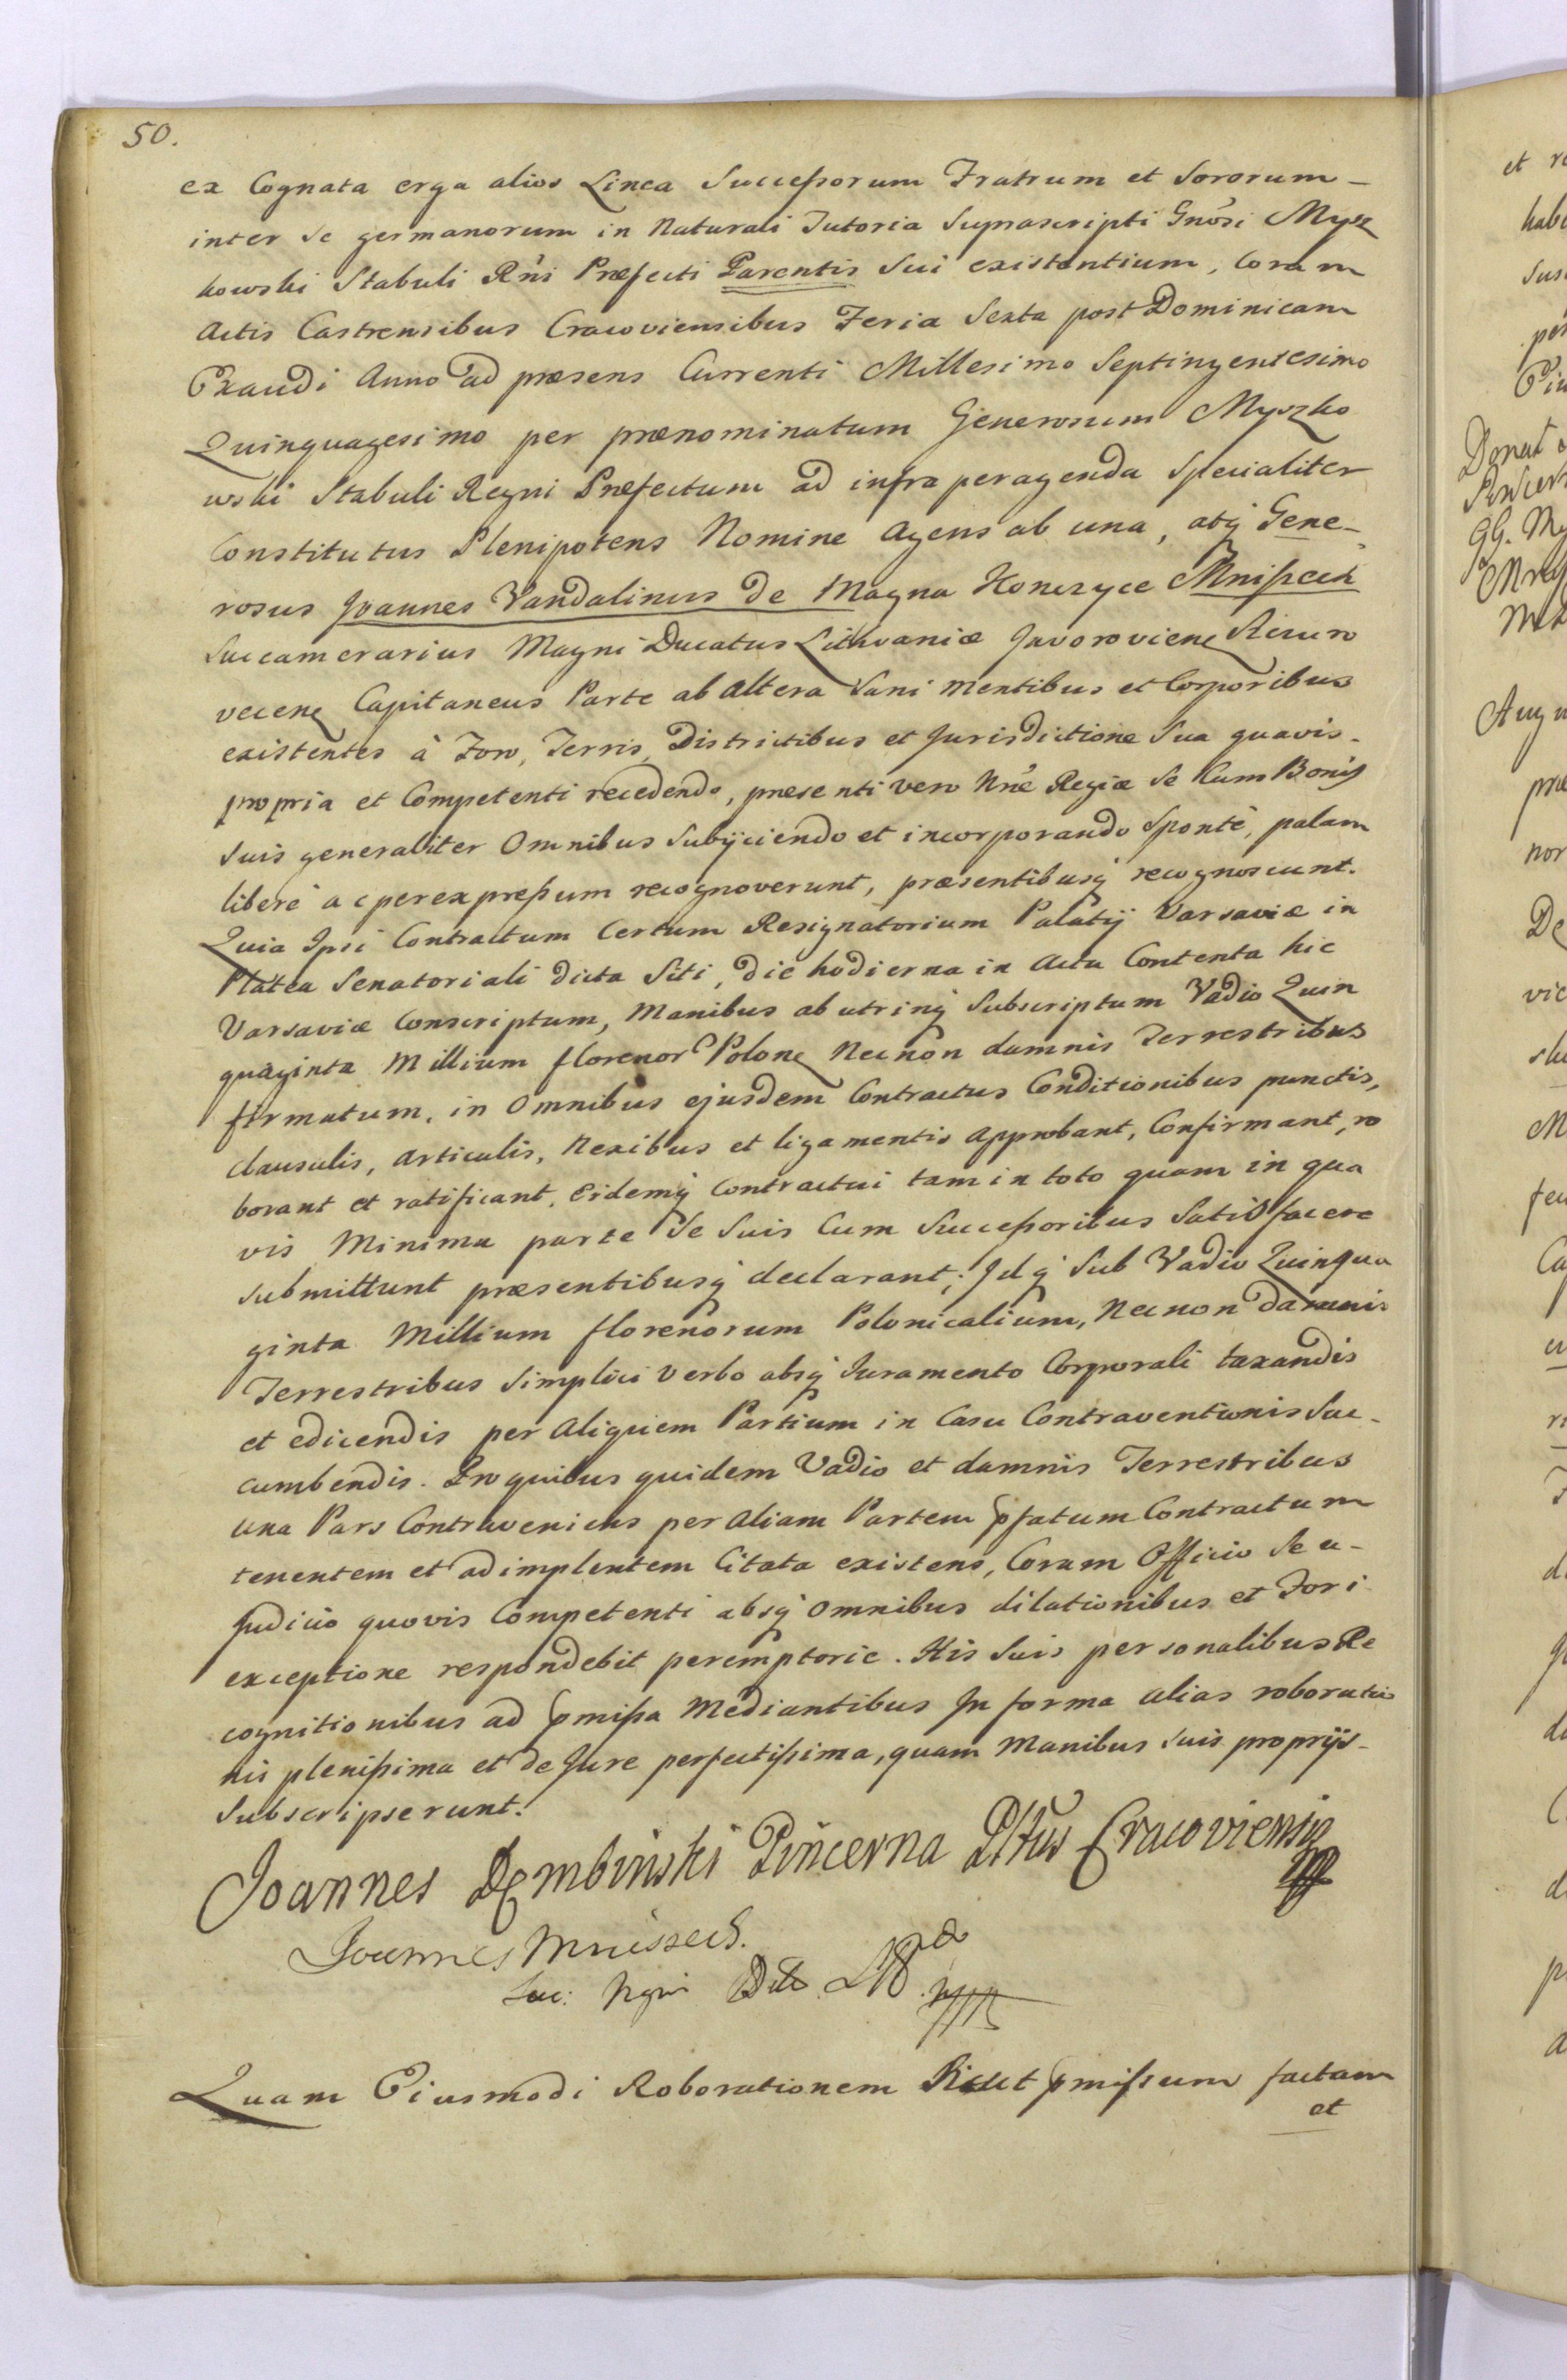 50.
ex Cognata erga alios Linea Successorum Fratrum et Sororum -
inter se germanorum in Naturali Tutoria Suprascripti Gnõsi Mysz
kowski Stabuli Rñi Præfecti Parentis Sui existentium, Coram
Actis Castrensibus Cracoviensibus Feria Sexta post Dominicam
Exaudi Anno ad præsens Currenti Millesimo Septingentesimo
Quinquagesimo per prænominatum Generosum Myszko
wski Stabuli Regni Præfectum ad infra peragenda Specialiter
Constitutus Plenipotens Nomine Agens ab una, atq Gene-
rosus Joannes Vandalinus de Magna Konczyce Mnisseck
Succamerarius Magni Ducatus Lithvaniæ Javoroviens
vecens Capitaneus Parte ab altera Sani mentibus et Corporibus
existentes à Foro, Terris, Districtibus et Jurisdictione Sua quavis -
propria et Competenti recedendo, præsenti vero Nrẽ Regiæ Se Cum Bonis
Suis generaliter Omnibus Subijciendo et incorporando Spontè, palam
liberè ac per expressum recognoverunt, præsentibusq recognoscunt.
Quia Ipsi Contractum Certum Resignatorium Palatij Varsaviæ in
Platea Senatoriali dicta Siti, die hodierna in Actu Contenta hic
Varsaviæ Conscriptum, Manibus ab utrinq Subscriptum Vadio Quin
quaginta Millium florenor Polon Necnon damnis Terrestribus
firmatum, in Omnibus ejusdem Contractus Conditionibus punctis,
clausulis, Articulis, Nexibus et ligamentis Approbant, Confirmant, ro
borant et ratificant, Eidemq Contractui tam in toto quam in qua
vis Minima parte Se Suis Cum Successoribus Satisfacere
submittunt præsentibusq declarant; Idq Sub Vadio Quinqua
ginta Millium florenorum Polonicalium, Necnon damnis
Terrestribus Simplici Verbo absq Juramento Corporali taxandis
et edicendis per Aliquem Partium in Casu Contraventionis Suc-
cumbendis. Pro quibus quidem Vadio et damnis Terrestribus
una Pars Contraveniens per Aliam Partem pfatum Contractum
tenentem et adimplentem Citata existens, Coram Officio Seu -
Judicio quovis Competenti absq Omnibus dilationibus et Fori
exceptione respondebit peremptorie. His Suis personalibus Re
cognitionibus ad pmissa Mediantibus In forma alias roboratio
nis plenissima et de Jure perfectissima, quam Manibus Suis proprijs -
Subscripserunt.
Joannes Dembinski Pincerna Pltũs Cracoviensis
Joannes Mniszech.
Suc:
Quam Eiusmodi Roborationem pmissum factam
et
et r